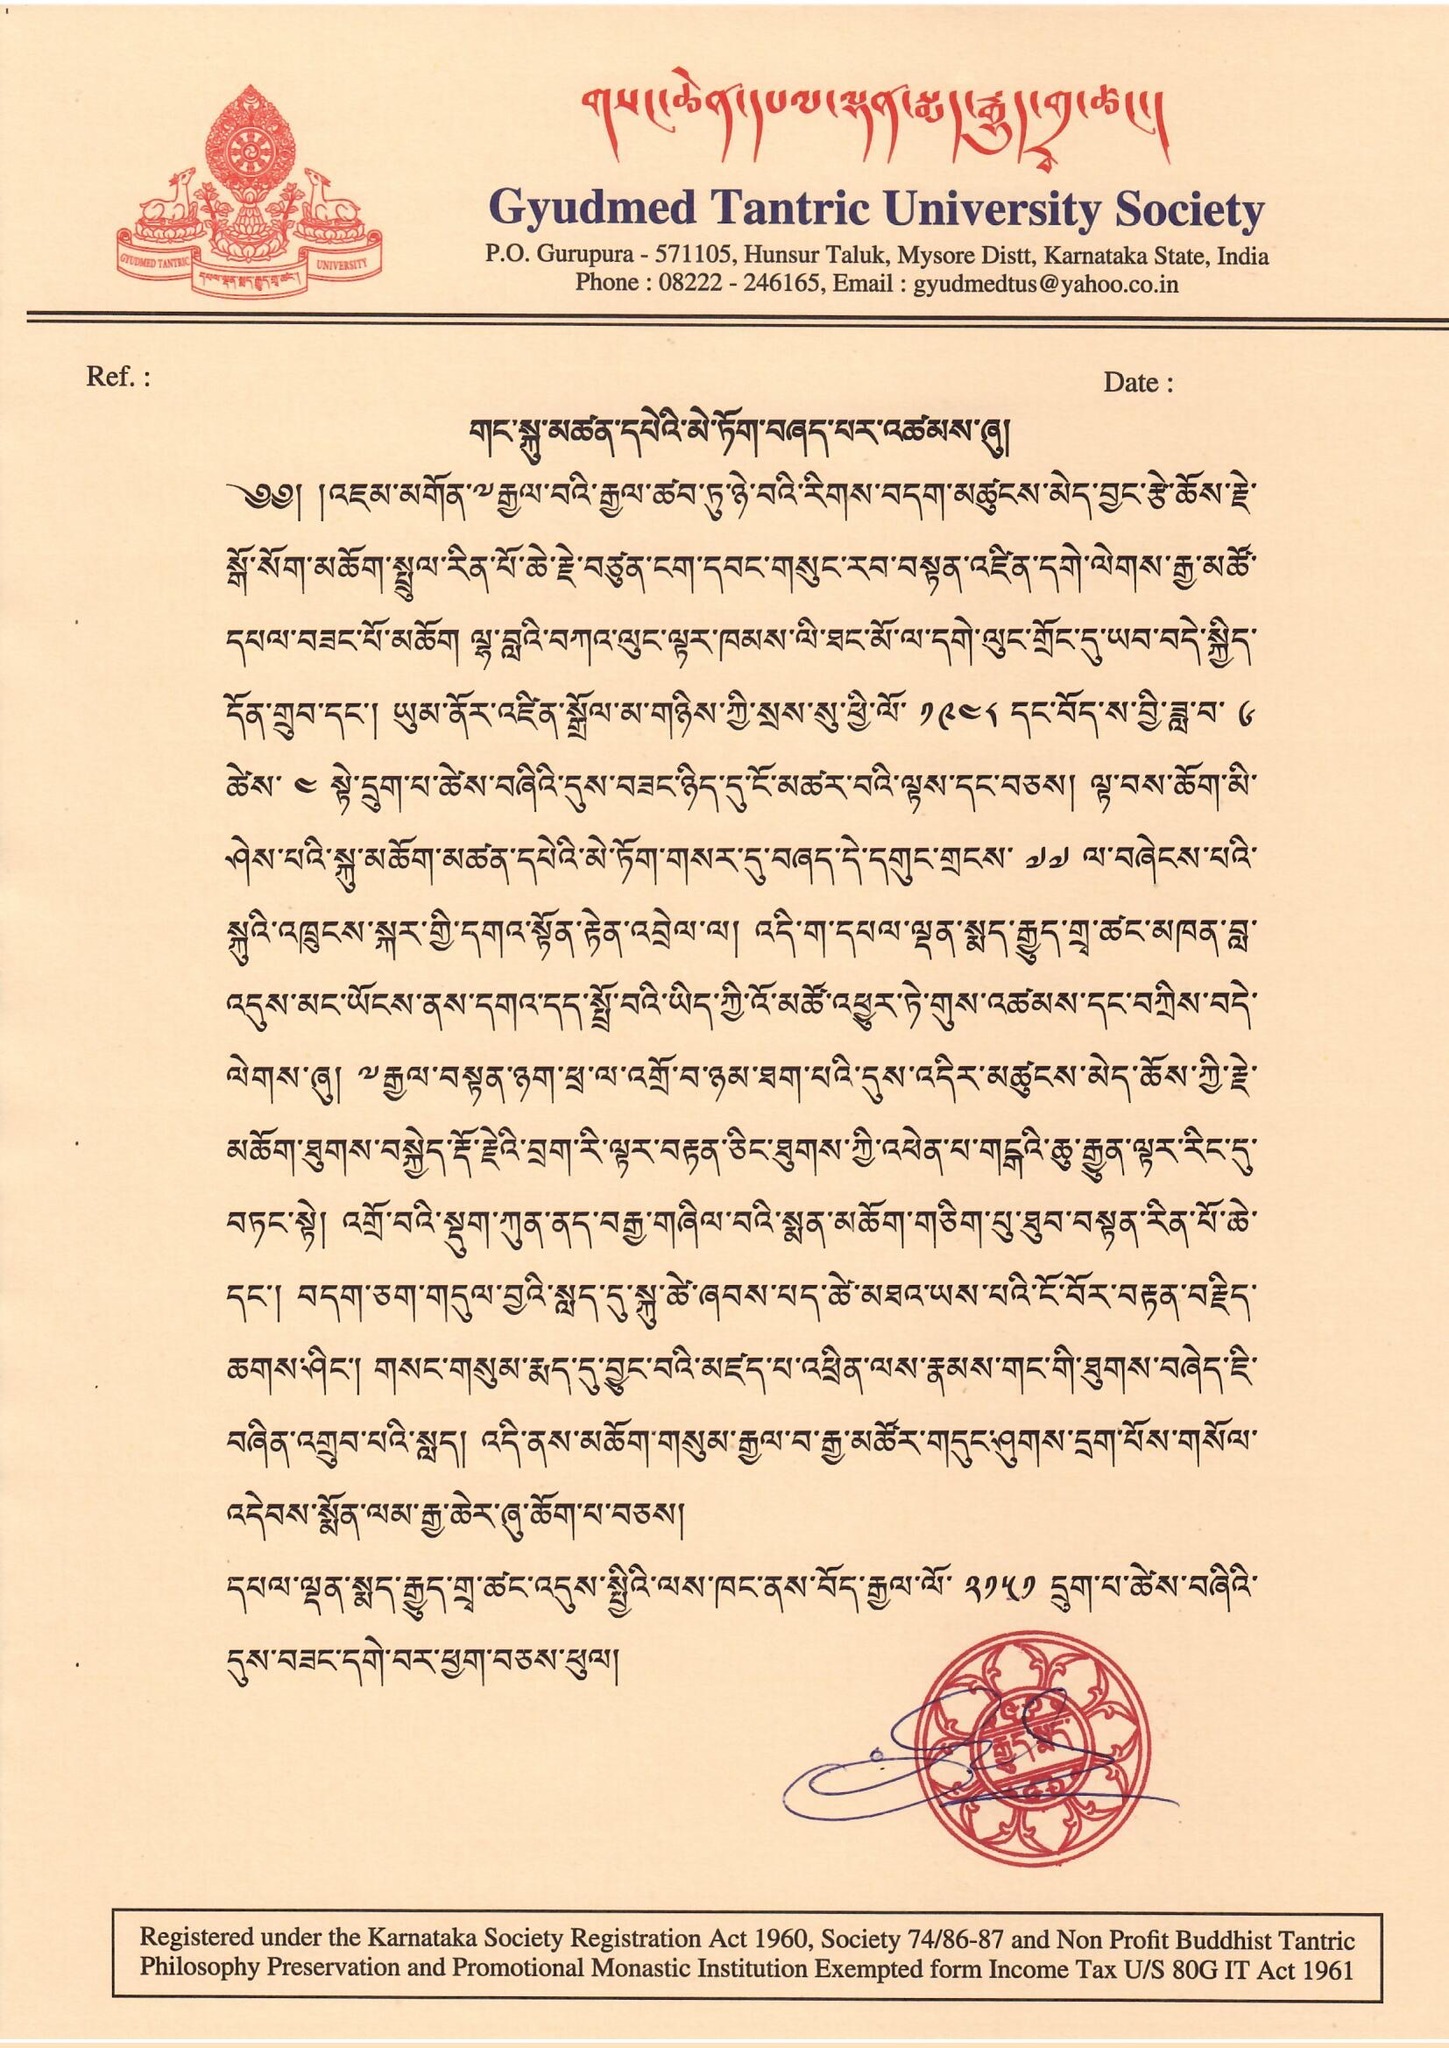 Gyudmed Tantric University Society
P.O. Gurupura - 571105, Hunsur Taluk, Mysore Distt, Karnataka State, India
Phone : 08222 - 246165, Email : gyudmedtus@yahoo.co.in
GYUDMED TANTRIC
UNIVERSITY
དཔལ་ལྡན་སྨད་རྒྱུད་གྲྭ་ཚང།
Ref. :
Date :
གང་སྐུ་མཚན་དཔེའི་མེ་ཏོག་བཞད་པར་འཚམས་ཞུ།
༄༅། །འཇམ་མགོན་༧རྒྱལ་བའི་རྒྱལ་ཚབ་ཏུ་ཉེ་བའི་རིགས་བདག་མཚུངས་མེད་བྱང་རྩེ་ཆོས་རྗེ་
སྒོ་སོག་མཆོག་སྤྲུལ་རིན་པོ་ཆེ་རྗེ་བཙུན་ངག་དབང་གསུང་རབ་བསྟན་འཛིན་དགེ་ལེགས་རྒྱ་མཚོ་
དཔལ་བཟང་པོ་མཆོག ལྷ་བླའི་བཀའ་ལུང་ལྟར་ཁམས་ལི་ཐང་མོ་ལ་དགེ་ལུང་གྲོང་དུ་ཡབ་བདེ་སྐྱིད་
དོན་གྲུབ་དང་། ཡུམ་ནོར་འཛིན་སྒྲོལ་མ་གཉིས་ཀྱི་སྲས་སུ་ཕྱི་ལོ་ ༡༩༤༨ དང་བོད་ས་བྱི་ཟླ་བ་ ༦
ཚེས་ ༤ སྟེ་དྲུག་པ་ཚེས་བཞིའི་དུས་བཟང་ཉིད་དུ་ངོ་མཚར་བའི་ལྟས་དང་བཅས། ལྟ་བས་ཆོག་མི་
ཤེས་པའི་སྐུ་མཆོག་མཚན་དཔེའི་མེ་ཏོག་གསར་དུ་བཞད་དེ་དགུང་གྲངས་ ༧༧ ལ་བཞེངས་པའི་
སྐུའི་འཁྲུངས་སྐར་གྱི་དགའ་སྟོན་རྟེན་འབྲེལ་ལ། འདི་ག་དཔལ་ལྡན་སྨད་རྒྱུད་གྲྭ་ཚང་མཁན་བླ་
འདུས་མང་ཡོངས་ནས་དགའ་དད་སྤྲོ་བའི་ཡིད་ཀྱི་འོ་མཚོ་འཕྱུར་ཏེ་གུས་འཚམས་དང་བཀྲིས་བདེ་
ལེགས་ཞུ། ༧རྒྱལ་བསྟན་ཉག་ཕྲ་ལ་འགྲོ་བ་ཉམ་ཐག་པའི་དུས་འདིར་མཚུངས་མེད་ཆོས་ཀྱི་རྗེ་
མཆོག་ཐུགས་བསྐྱེད་རྡོ་རྗེའི་བྲག་རི་ལྟར་བརྟན་ཅིང་ཐུགས་ཀྱི་འཕེན་པ་གངྒཱའི་ཆུ་རྒྱུན་ལྟར་རིང་དུ་
བཏང་སྟེ། འགྲོ་བའི་སྡུག་ཀུན་ནད་བརྒྱ་གཞིལ་བའི་སྨན་མཆོག་གཅིག་པུ་ཐུབ་བསྟན་རིན་པོ་ཆེ་
དང་། བདག་ཅག་གདུལ་བྱའི་སླད་དུ་སྐུ་ཚེ་ཞབས་པད་ཚེ་མཐའ་ཡས་པའི་ངོ་བོར་བརྟན་བརྗིད་
ཆགས་ཤིང་། གསང་གསུམ་རྨད་དུ་བྱུང་བའི་མཛད་པ་འཕྲིན་ལས་རྣམས་གང་གི་ཐུགས་བཞེད་ཇི་
བཞིན་འགྲུབ་པའི་སླད། འདི་ནས་མཆོག་གསུམ་རྒྱལ་བ་རྒྱ་མཚོར་གདུང་ཤུགས་དྲག་པོས་གསོལ་
འདེབས་སྨོན་ལམ་རྒྱ་ཆེར་ཞུ་ཆོག་པ་བཅས།
དཔལ་ལྡན་སྨད་རྒྱུད་གྲྭ་ཚང་འདུས་སྤྱིའི་ལས་ཁང་ནས་བོད་རྒྱལ་ལོ་ ༢༡༥༡ དྲུག་པ་ཚེས་བཞིའི་
དུས་བཟང་དགེ་བར་ཕྱག་བཅས་ཕུལ།
རྒྱུད་སྨད་
Registered under the Karnataka Society Registration Act 1960, Society 74/86-87 and Non Profit Buddhist Tantric
Philosophy Preservation and Promotional Monastic Institution Exempted form Income Tax U/S 80G IT Act 1961